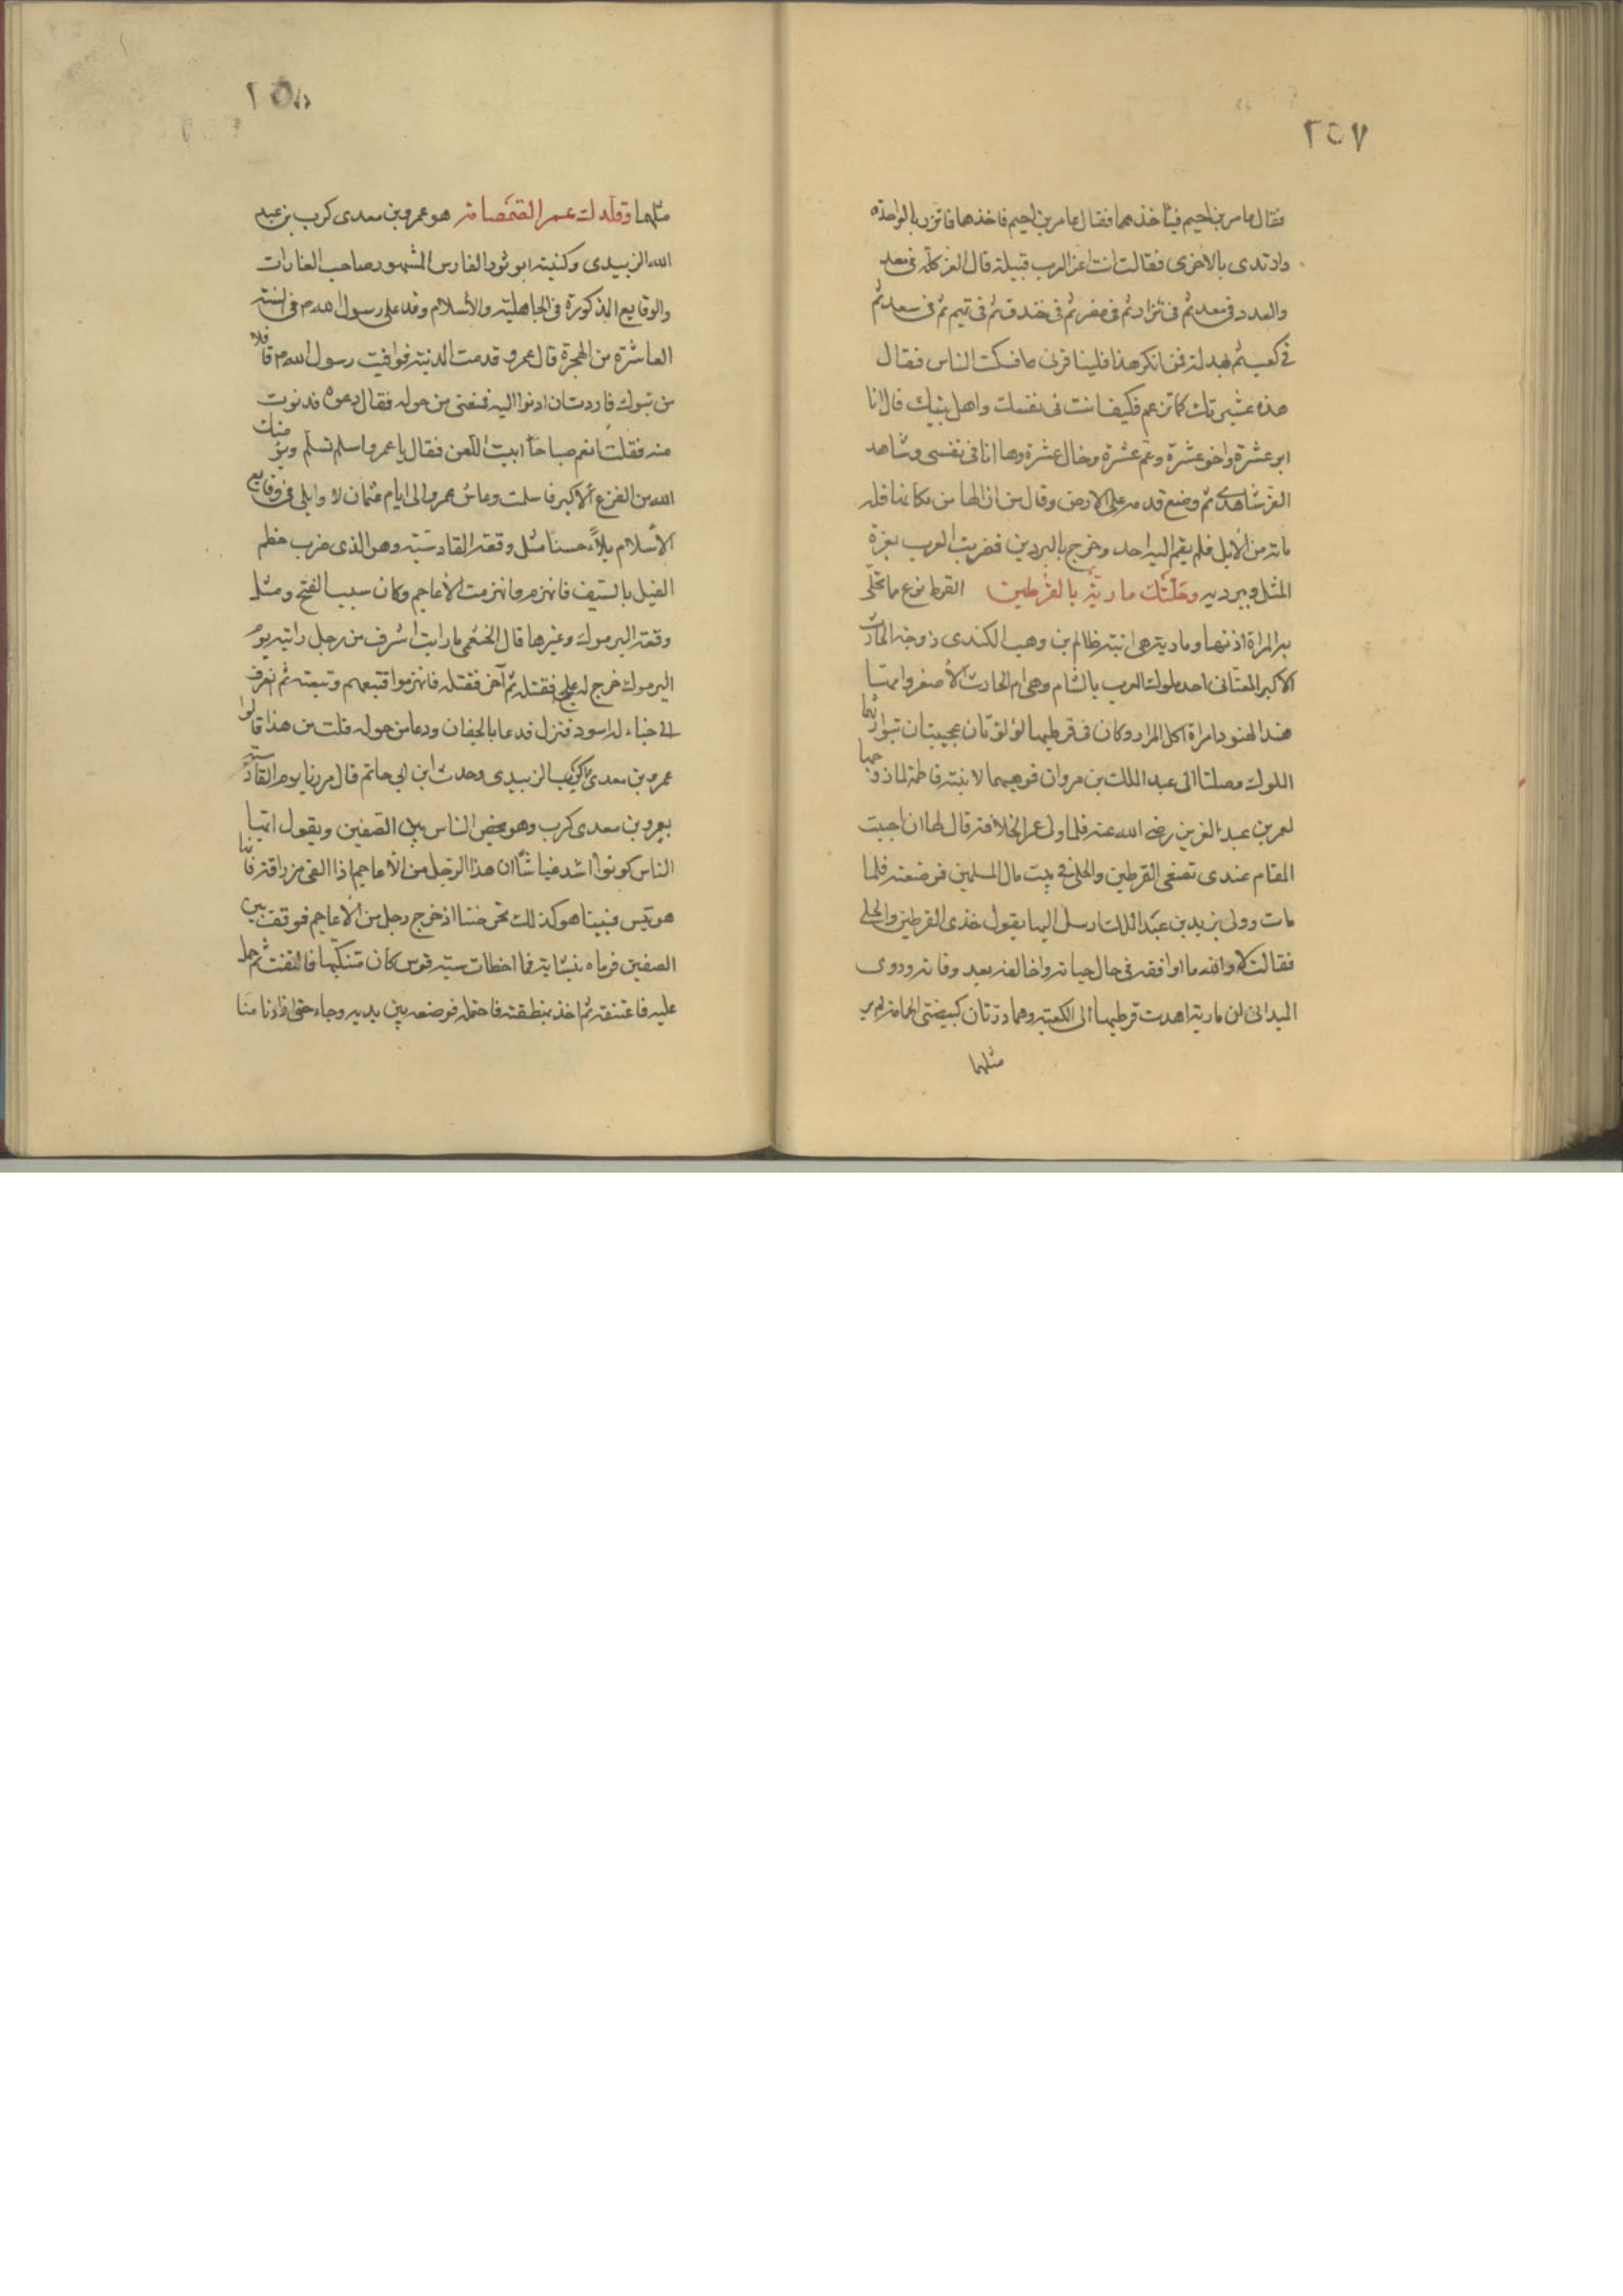 ٢٥٧
فقال عامر بن احيم فيأخذهما فقال عامر بن احيم فاخذهما فاتزر بالواحدة
وارتدى بالاخرى فقالت انت اعز العرب قبيلة قال العز كله فى معد
والعدد فى معد ثم فى نزار ثم فى مضر ثم فى خندف ثم فى تميم ثم فى سعد ثم
فى كعب ثم بهدلة فمن انكر هذا فلينافرنى فسكت الناس فقال
هذه عشيرتك كما تزعم فكيف انت فى نفسك واهل بيتك قال انا
ابو عشرة واخو عشرة وعم عشرة وخال عشرة وها انا فى نفسى وشاهد
العز شاهدى ثم وضع قدمه على الارض وقال من ازالها من مكانها فله
مائة من الأبل فلم يقم اليه احد وخرج بالبردين فضربت العرب بعزة
المثل وببرديه وحَلّتْكَ مارية بالقُرطين القرط نوع ما تحلّى
به المراة اذنها ومارية هى ابنة ظالم بن وهب الكندى زوجة الحارث
الاكبر الغسانى احد ملوك العرب بالشام وهى ام الحارث الأصغر وامها
هند الهنود امراة اكل المرار وكان فى قرطيها لؤلؤتان عجيبتان توارثها
الملوك وصلتا الى عبد الملك بن مروان فوهبهما لابنته فاطمة لما زوجها
لعمر بن عبد العزيز رضى الله عنه فلما ولى عمر الخلافة قال لها ان احببت
المقام عندى تضعى القرطين والحلى فى بيت مال المسلمين فوضعته فلما
مات وولى يزيد بن عبد الملك ارسل اليها يقول خذى القرطين والحلى
فقالت لا والله ما اوافقه فى حال حياته واخالفه بعد وفاته وروى
الميدانى ان مارية اهدت قرطيها الى الكعبة وهما درتان كبيضتى الحمامة لم ير
مثلهما
٢٥٨
مثلهما وقلّدك عمر الصّمصامة هو عمرو بن معدى كرب بن عبد
الله الزبيدى وكنيته ابو ثور الفارس المشهور صاحب الغارات
والوقايع المذكورة فى الجاهلية والأسلام وفد على رسول الله م فى السنة
العاشرة من الهجرة قال عمرو قدمت المدينة فوافيت رسول الله م قافلا
من تبوك فاردت ان ادنوا اليه فمنعنى من حوله فقال دعوه فدنوت
منه فقلت انعم صباحا ابيت اللعن فقال يا عمرو اسلم تسلم ويؤمنك
الله من الفزع ألاكبر فاسلمت وعاش عمرو الى ايام عثمان وابلى فى وقايع
الأسلام بلاء حسنا مثل وقعة القادسّية وهو الذى ضرب خطم
الفيل بالسيف فانهزم وانهزمت الأعاجم وكان سبب الفتح ومثل
وقعة اليرموك وغيرها قال الخثعمى ما رايت اشرف من رجل رايته يوم
اليرموك خرج له علج فقتله ثم آخر فقتله فانهزموا فتبعهم وتبعته ثم انصرف
الى خباء له اسود فنزل فدعا بالجفان ودعا من حوله قلت من هذا قالوا
عمرو بن معدى كرب الزبيدى وحدث ابن ابى حاتم قال مر بنا يوم القادسية
بعمرو بن معدى كرب وهو يحض الناس بين الصفين ويقول ايها
الناس كونوا اشد ان هذا الرجل من الأعاجم اذا القى مزراقه فانما
هو تيس فبينا هو كذلك يحرضنا اذ خرج رجل من الأعاجم فوقف بين
الصفين فرماه بنشابة فما اخطات سية قوس كان متنكبها فالتفت ثم حمل
عليه فاعتنقه ثم اخذ بمنطقته فاحتمله فوضعه بين يديه وجاء حتى اذا دنا منا